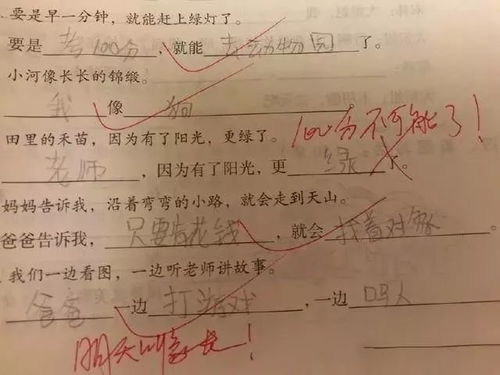 要是早一分钟，就能赶上绿灯了。
要是考100分，就能去动物园了。
小河像长长的锦缎。
我像狗
100分不可能了！
田里的禾苗，因为有了阳光，更绿了。
老师，因为有了阳光，更绿了。
妈妈告诉我，沿着弯弯的小路，就会走到天山。
爸爸告诉我，只要有花钱，就会找着对象
我们一边看图，一边听老师讲故事。
爸爸一边打游戏，一边骂人
明天叫家长！